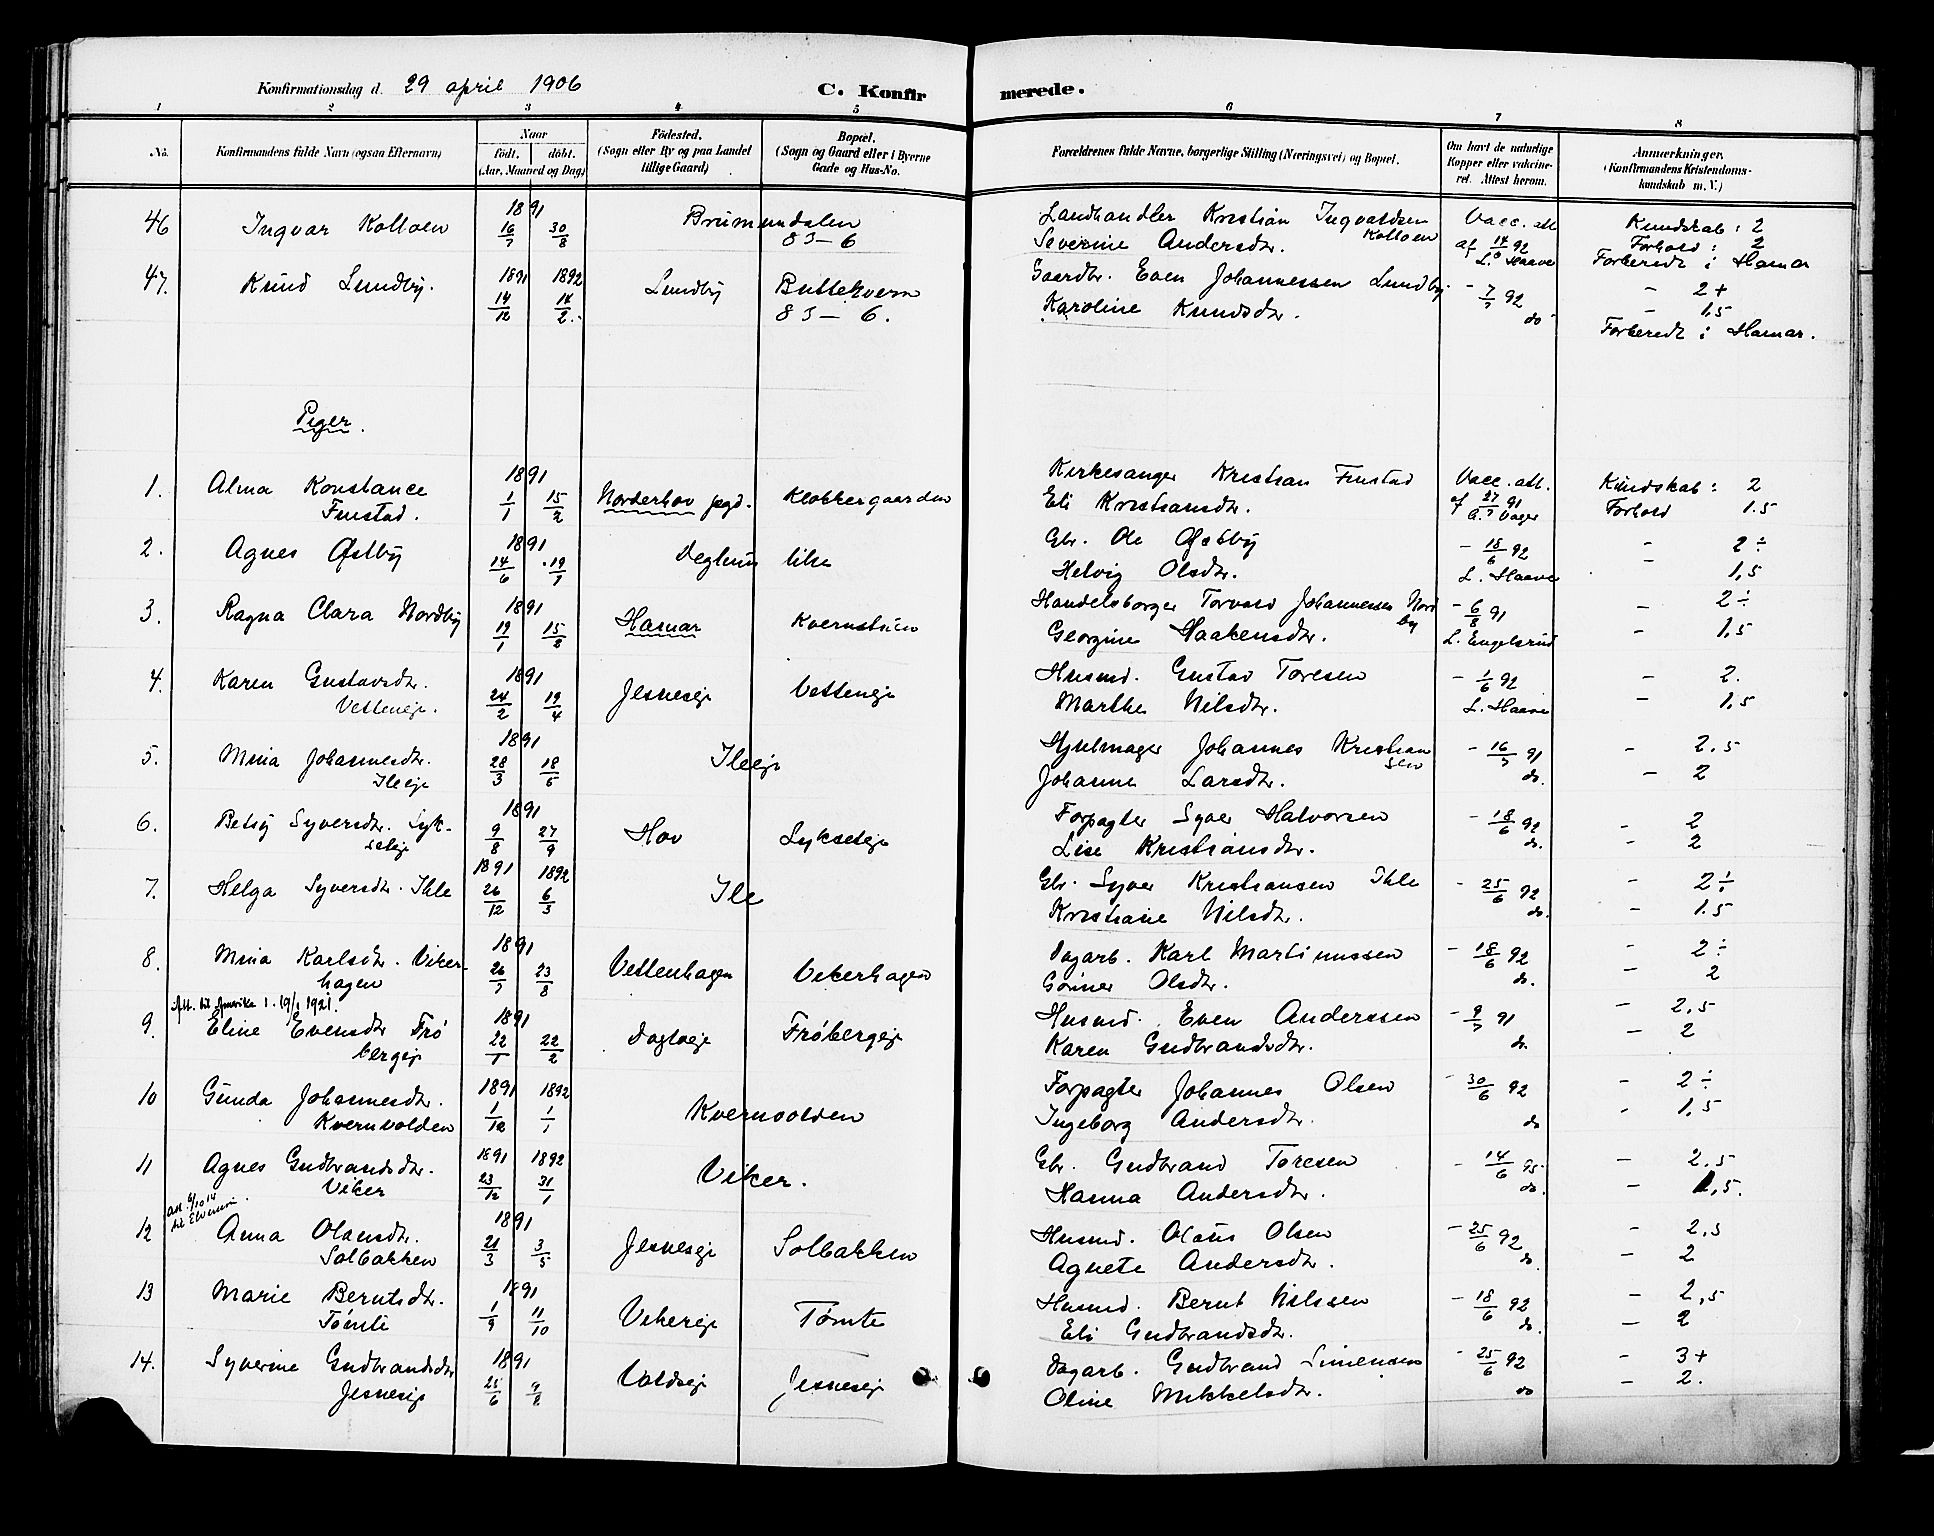 Konfirmationsdag d. 29 april 1906
C. Konfirmerede.
1 2 3 4 5 6 7 8
No. Konfirmandens fulde Navn (ogsaa Efternavn) Naar födt. döbt. (Aar, Maaned og Dag) Födested. (Sogn eller By og paa Landet tillige Gaard) Bopæl. (Sogn og Gaard eller i Byerne Gade og Hus-No. Forældrenes fulde Navne, borgerlige Stilling (Næringsvei) og Bopæl. Om havt de naturlige Kopper eller vakcineret. Attest herom. Anmærkninger. (Konfirmandens Kristendomskundskab m. V.)
46 Ingvar Kolloen 1891 16/7 30/8 Brumundalen 83-6 Landhandler Kristian Ingvaldsen Kolloen Vacc. att. Kundskab: 2
Severine Andersdtr. af 14/6 92 L. Haave Forhold: 2
Forberedt i Hamar
47. Knud Lundby. 1891 14/12 1892 14/2. Lundby Buttekvern 83-6. Gaardbr. Even Johannessen Lundby - 7/7 92 - 2+
Karoline Knudsdtr. do - 1,5
Forberedt i Hamar.
Piger.
1. Alma Konstance 1891 1/1 15/2 Norderhov pgd. Klokkergaarden Kirkesanger Kristian Finstad Vacc. att. Kundskab: 2
Finstad. Eli Kristiansdtr. af 27/7 91 Forhold 1.5
2. Agnes Østby 1891 14/6 19/7 Deglum Gbr. Ole Østby - 18/6 92 - 2÷
Helvig Olsdtr. L. Haave - 1,5
3. Ragna Clara Nordby 1891 19/1 15/2 Hamar Kvernstuen Handelsborger Torvald Johannessen Nordby - 6/8 91 - 2÷
Georgine Haakensdtr. L. Engelsrud - 1,5
4. Karen Gustavsdtr. 1891 24/2 19/4 Jesneseje Vetteneje Husmd. Gustav Toresen - 1/6 92 - 2.
Vetteneje. Marthe Nilsdtr. L. Haave - 1,5
5. Mina Johannesdtr. 1891 28/3 18/5 Ileeje Hjulmager Johannes Kristiansen - 16/7 91 - 2.5
Ileeje Johanne Larsdtr. do. - 2
6. Betsy Syversdtr. Lyk- 1891 9/8 27/9 Hov Lykseteje Forpagter Syver Halvorsen - 18/6 92 - 2
seteje Lise Kristiansdtr. do. - 2
7. Helga Syversdtr. Ihle 1891 26/12 1892 6/3 Ile Gbr. Syver Kristiansen Ihle - 25/6 92 - 2÷
Kristiane Nilsdtr. do. - 1.5
8. Mina Karlsdtr. Viker- 1891 26/7 23/8 Vettenhagen Vikerhagen Dagarb. Karl Martinussen - 18/6 92 - 2÷
hagen Guner Olsdtr. do. - 2
Att. til Amerika 1921.
9. Eline Evensdtr Frø 1891 22/1 22/2 Frøbergeje Husmd. Even Anderssen - 9/7 91 - 2,5
bergeje Karen Gudbrandsdtr. do. - 2
10 Gunda Johannesdtr. 1891 1/12 1892 1/1 Kvernvolden Forpagter Johannes Olsen - 30/6 92 - 2÷
Kvernvolden Ingeborg Andersdtr. do - 1,5
11 Agnes Gudbrandsdtr. 1891 23/12 1892 31/1 Viker. Gbr. Gudbrand Toresen - 14/6 95 - 2,5
Viker Hanna Andersdtr. do. - 1,5.
att. 6/10 14 til Elverum
12 Anna Olausdtr. 1891 21/3 3/5 Jesneseje Solbakken Husmd. Olaus Olsen - 25/6 92 - 2,5
Solbakken Agnete Andersdtr. do. - 2
13 Marie Berntsdtr. 1891 1/9 11/10 Vikereje Tømte Husmd. Bernt Nilssen - 18/6 92 - 2,5
Tømte Eli Gudbrandsdtr. do. - 2
14. Syverine Gudbrandsdtr 1891 25/6 9/8 Voldseje Jesneseje Dagarb. Gudbrand Simensen - 25/6 92 - 3+
Jesneseje Oline Mikkelsdtr. do - 2.